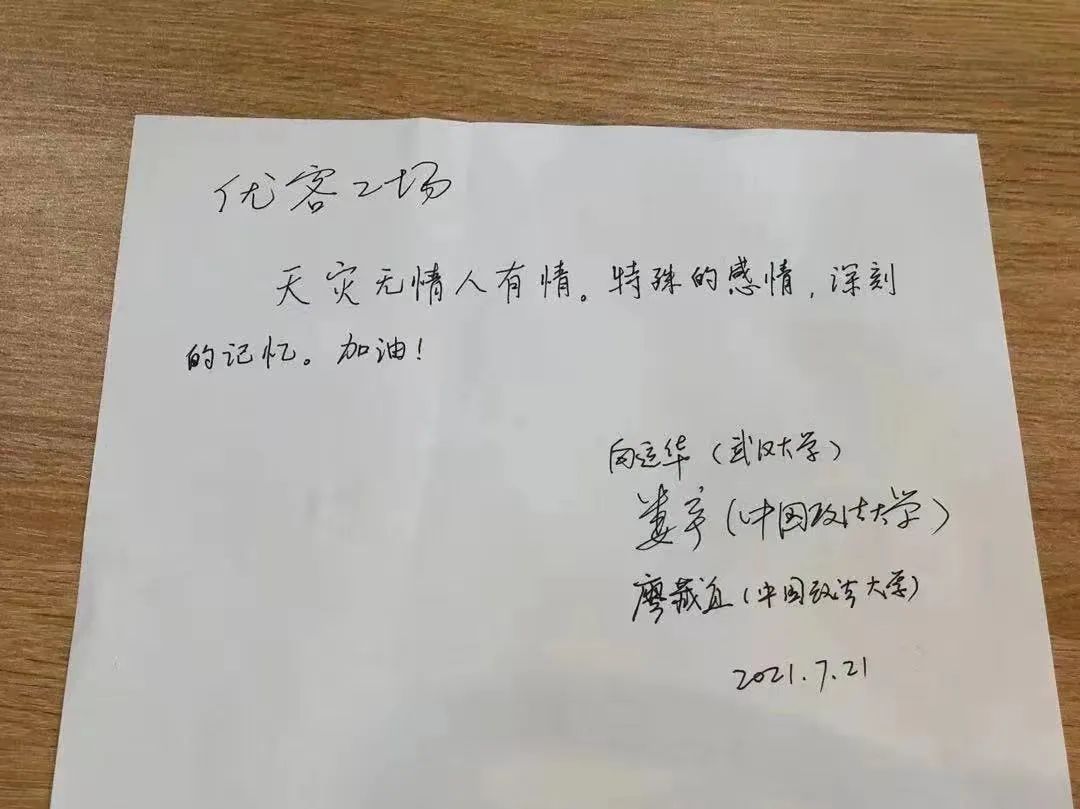 优客工场
天灾无情人有情。特殊的感情，深刻
的记忆。加油！
向运华（武汉大学）
娄宇（中国政法大学）
廖藏宜（中国政法大学）
2021.7.21